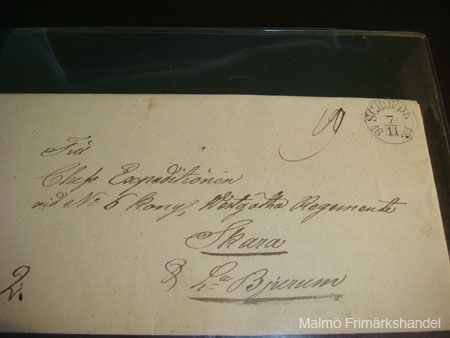 SCKÖFDE
7
11
Till
Chefs Expeditionen
vid No 6 Kongl. Westgötha Regemente
Skara
&
Bjerum
2.
Malmö Frimärkshandel